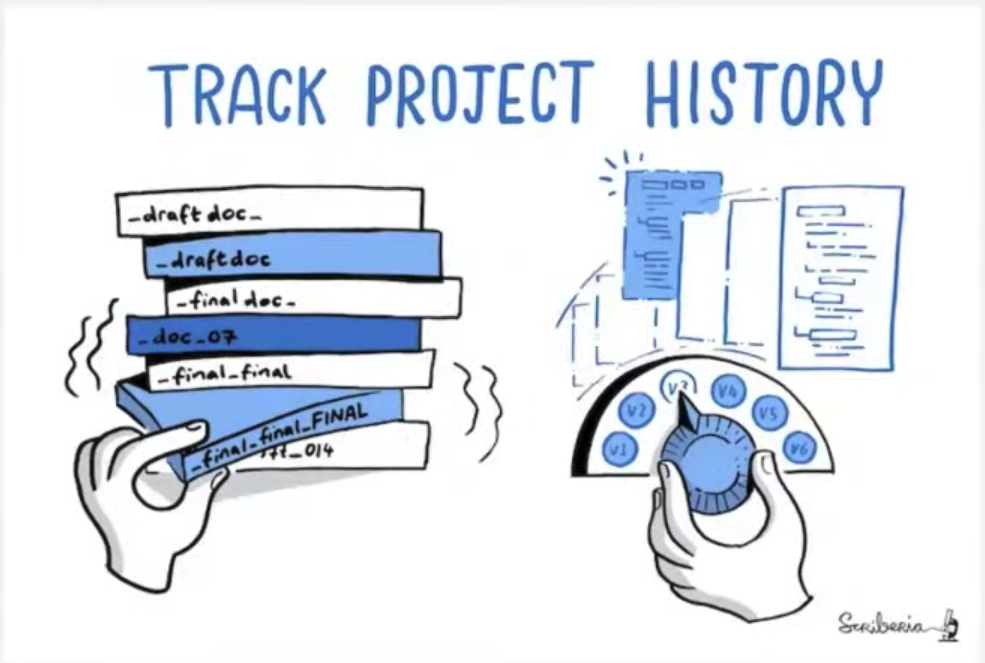 TRACK PROJECT HISTORY
_draft doc_
_draft doc
_final doc_
_doc_07
_final_final
_final_final_FINAL
_014
V1
V2
V3
V4
V5
V6
Scriberia